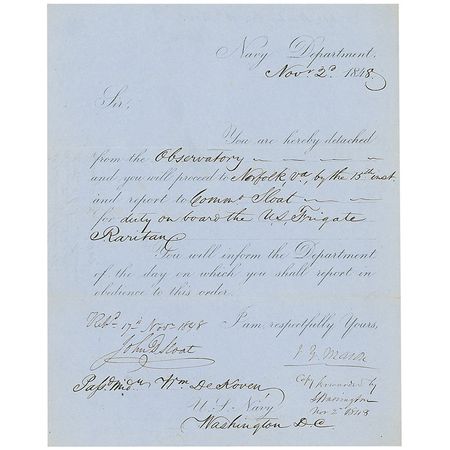 Navy Department.
Novr 2d 1848
Sir,
You are hereby detached
from the Observatory
and you will proceed to Norfolk, Va, by the 15th inst.
and report to Commo Sloat
for duty on board the U.S. Frigate
Raritan.
You will inform the Department
of the day on which you shall report in
obedience to this order.
I am, respectfully Yours,
17th Novr 1848
John D. Sloat
J. Y. Mason
Passd Midn Wm De Koven
U. S. Navy
Washington D.C.
Copy forwarded by
S Barrington
Nov 2d 1848